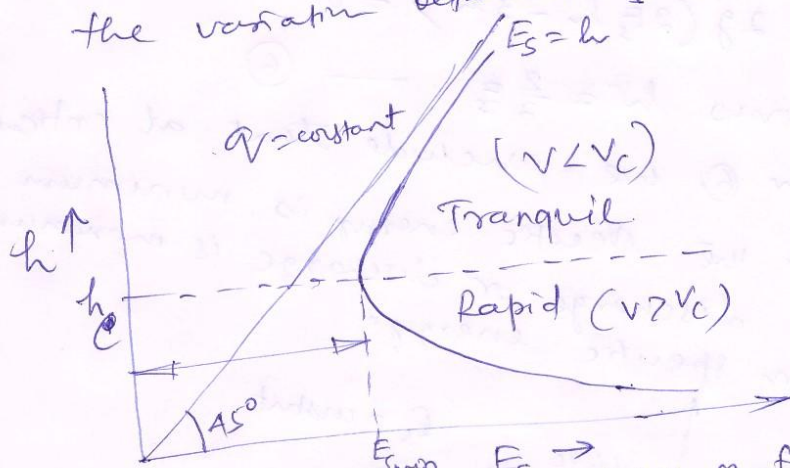 the variation
E_s = h
q = constant
(V < V_c)
Tranquil
h ↑
h_c
Rapid (V > V_c)
45°
E_smin E_s →